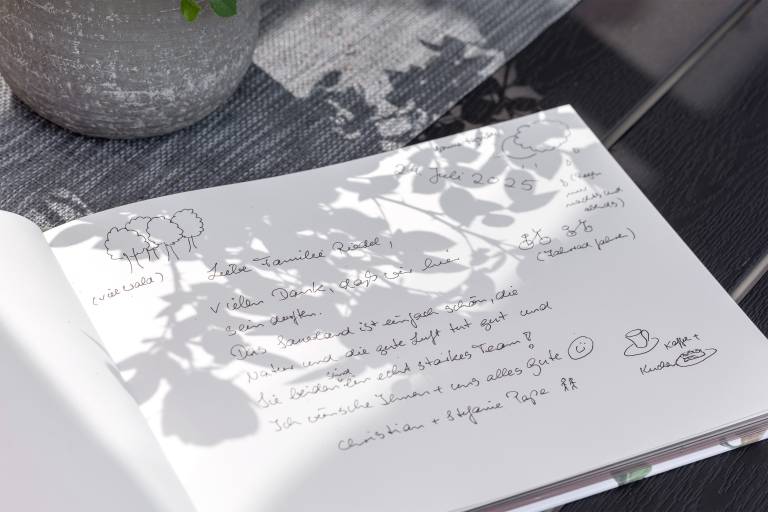 24. Juli 2025
(Regen nur nachts und abends)
(viel Wald)
Liebe Familie Riedel,
(Fahrrad fahren)
Vielen Dank, daß wir hier
sein durften.
Das Sauerland ist einfach schön, die
Natur und die gute Luft tut gut und
Sie beiden sind ein echt starkes Team!
Kaffee +
Kuchen
Ich wünsche Ihnen + uns alles Gute
Christian + Stefanie Pape